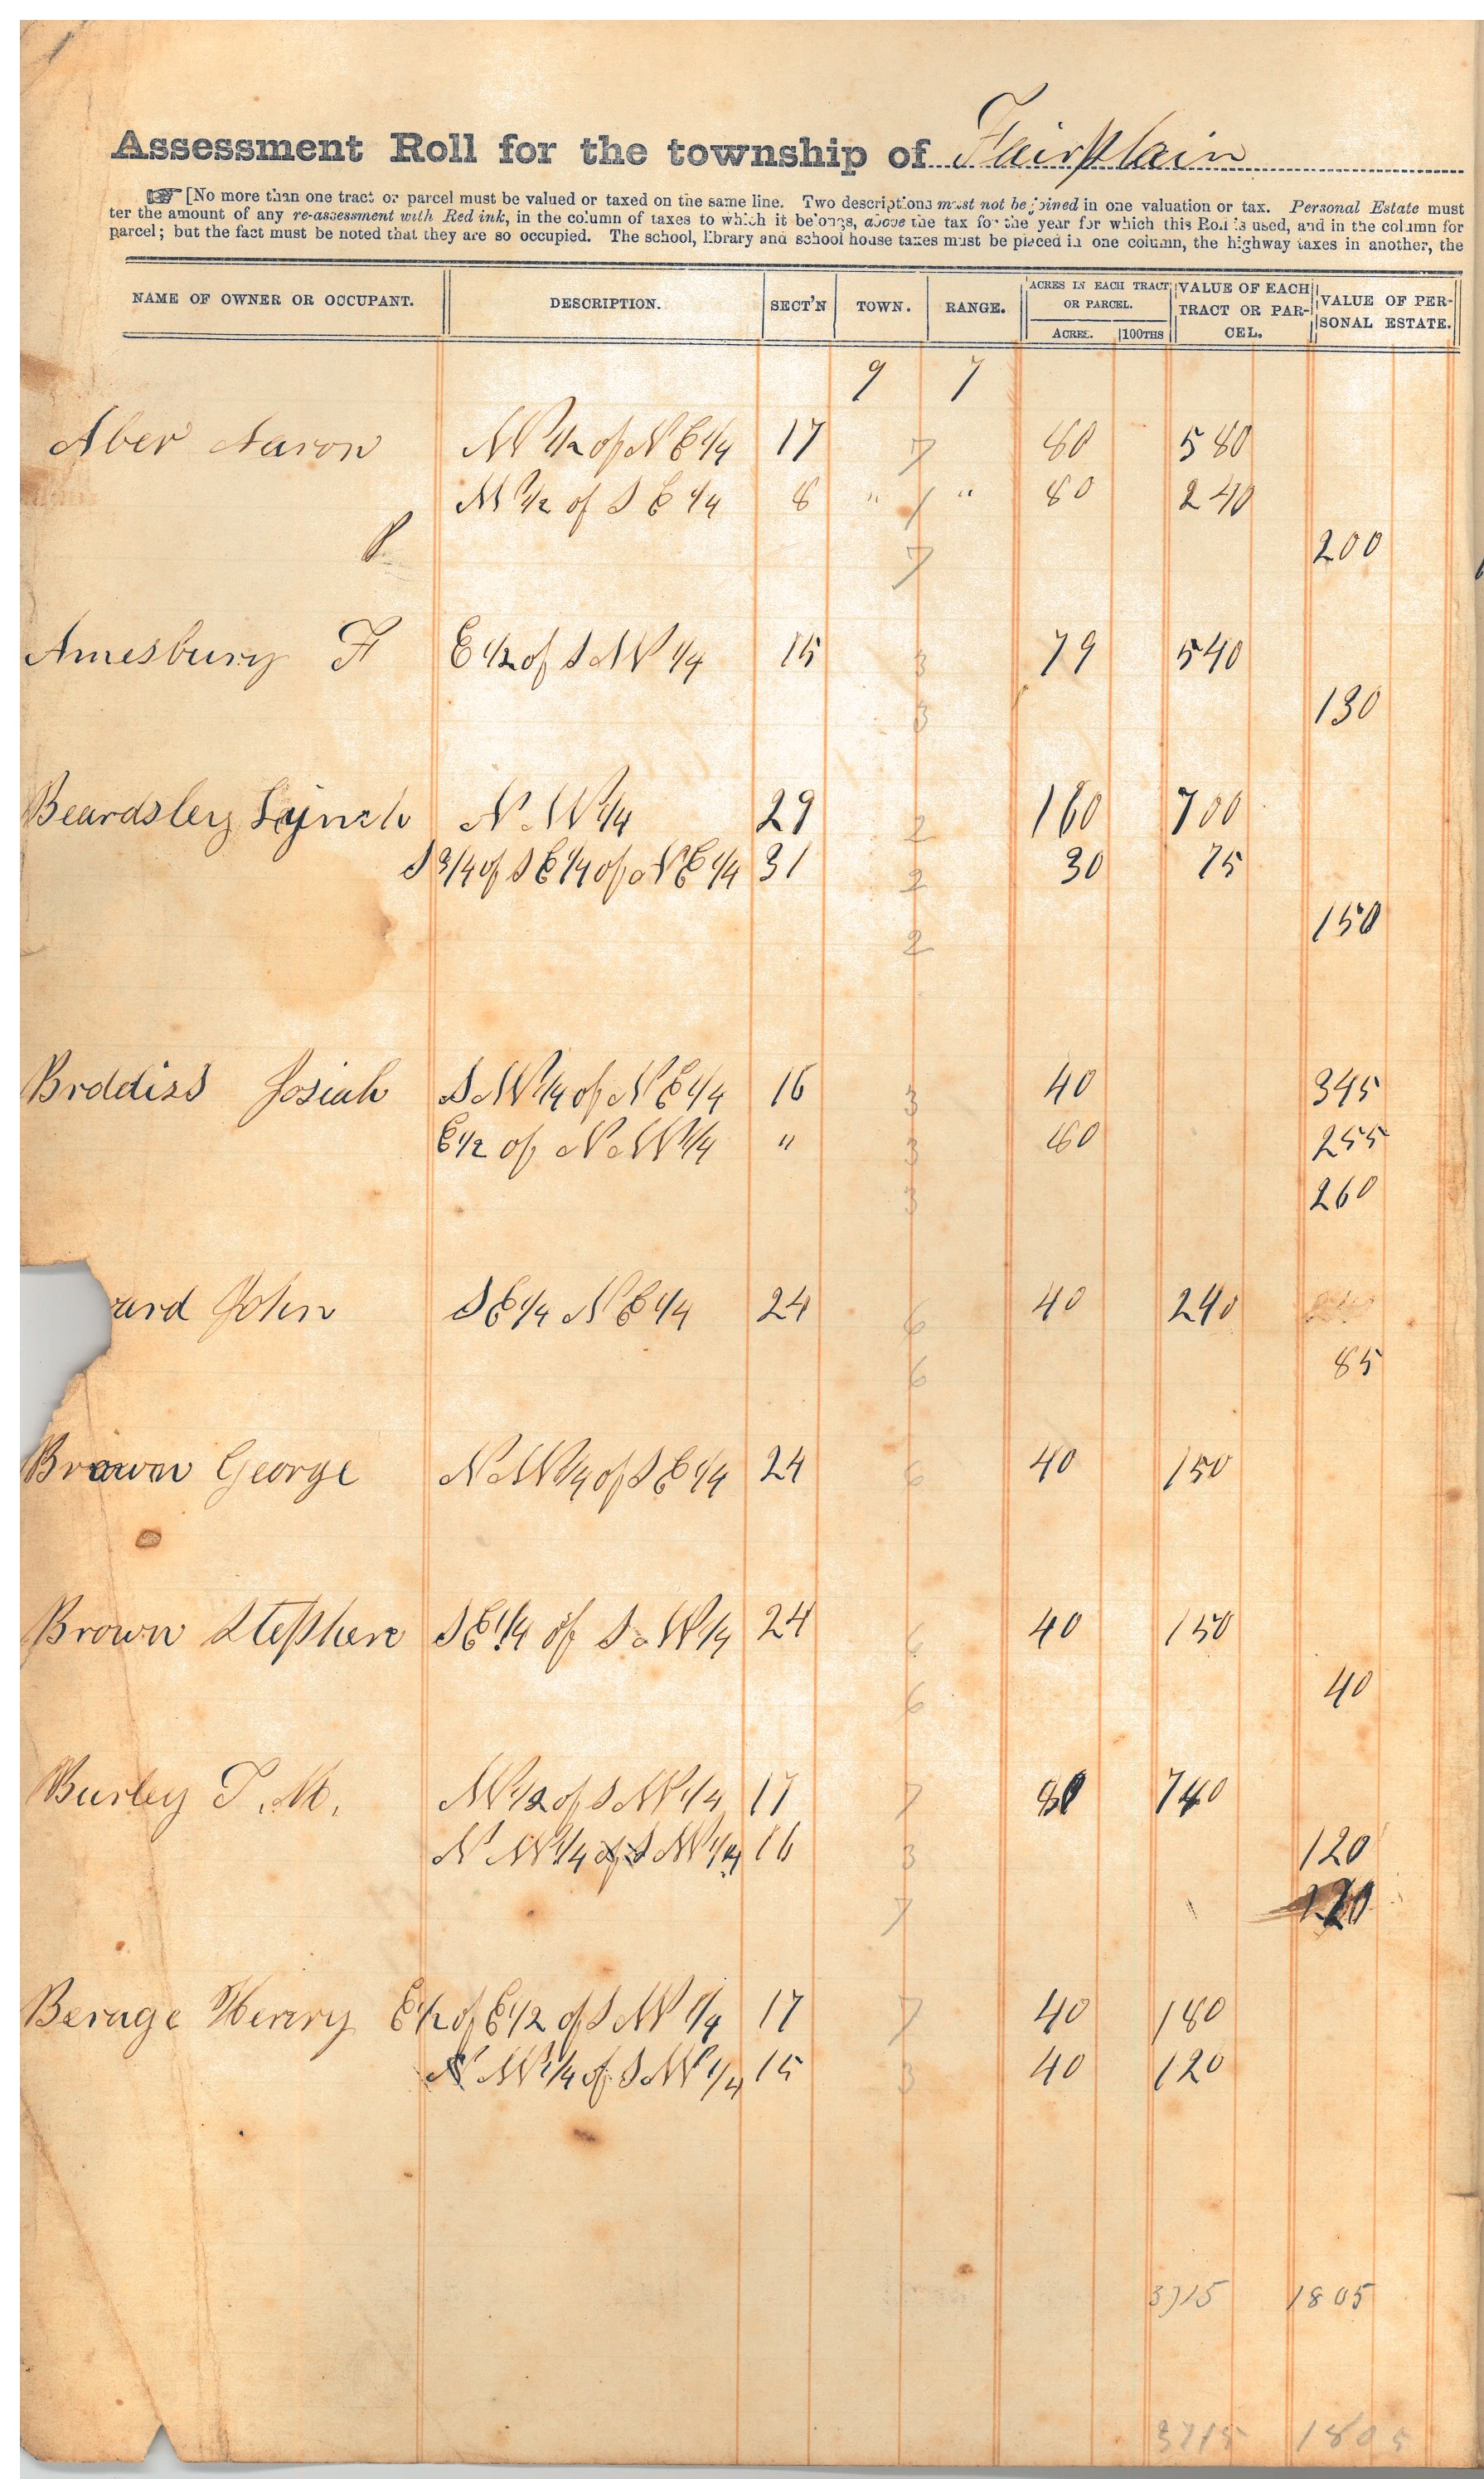 Assessment Roll for the township of Fairplain
☞ [No more than one tract or parcel must be valued or taxed on the same line. Two descriptions must not be joined in one valuation or tax. Personal Estate must
ter the amount of any re-assessment with Red ink, in the column of taxes to which it belongs, above the tax for the year for which this Roll is used, and in the column for
parcel; but the fact must be noted that they are so occupied. The school, library and school house taxes must be placed in one column, the highway taxes in another, the
NAME OF OWNER OR OCCUPANT. DESCRIPTION. SECT'N TOWN. RANGE. ACRES IN EACH TRACT OR PARCEL. ACRES. 100THS VALUE OF EACH TRACT OR PARCEL. VALUE OF PERSONAL ESTATE.
9 7
Aber Aaron W 1/2 of N E 1/4 17 7 80 580
W 1/2 of S E 1/4 8 " 1 " 80 240
P 7 200
Amesbury F E 1/2 of S W 1/4 15 3 79 540
3 130
Beardsley Lynch N W 1/4 29 2 160 700
S 3/4 of S E 1/4 of N E 1/4 31 2 30 75
2 150
Broddiss Josiah S W 1/4 of N E 1/4 16 3 40 345
E 1/2 of N W 1/4 " 3 80 255
3 260
ard John S E 1/4 N E 1/4 24 6 40 240
6 85
Brown George N W 1/4 of S E 1/4 24 6 40 150
Brown Stephen S E 1/4 of S W 1/4 24 6 40 150
6 40
Burley T. M. W 1/2 of S W 1/4 17 7 80 740
N W 1/4 of S W 1/4 16 3 120
7 220
Berage Henry E 1/2 of E 1/2 of S W 1/4 17 7 40 180
N W 1/4 of S W 1/4 15 3 40 120
3715 1805
3715 1805